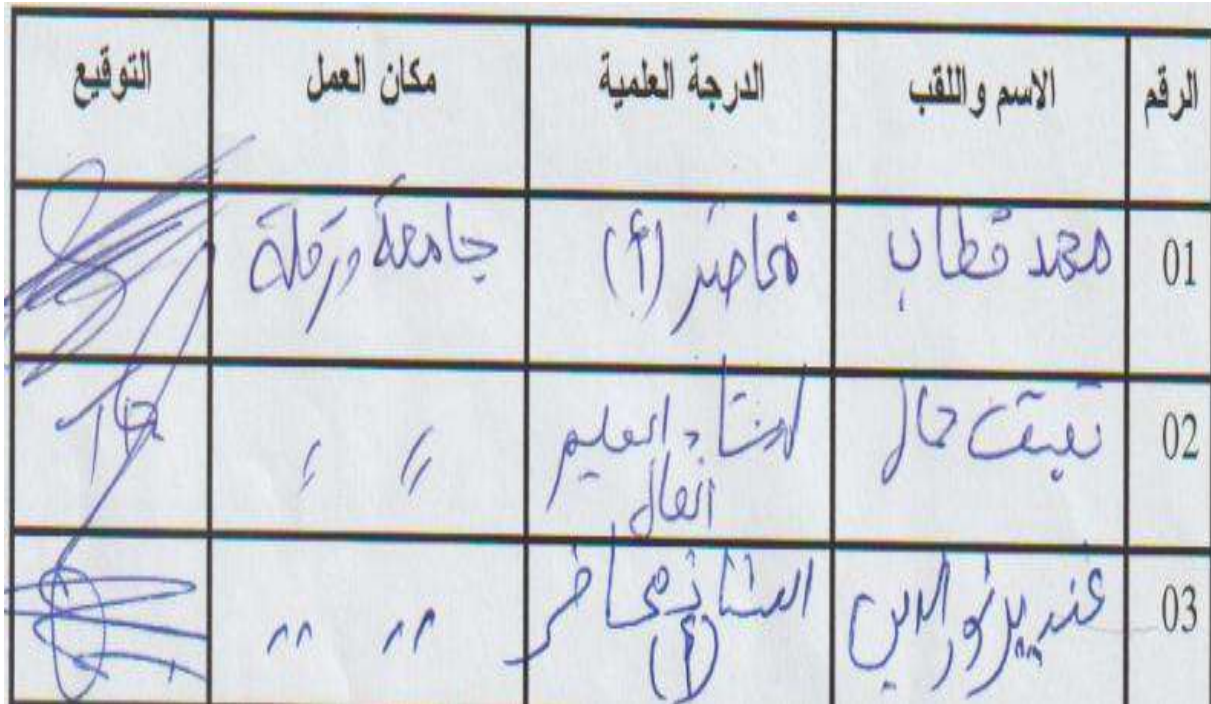 الرقم الاسم واللقب الدرجة العلمية مكان العمل التوقيع
01 محمد قطاب محاضر (أ) جامعة ورقلة
02 أستاذ التعليم العالي " "
03 نور الدين أستاذ محاضر (أ) " "